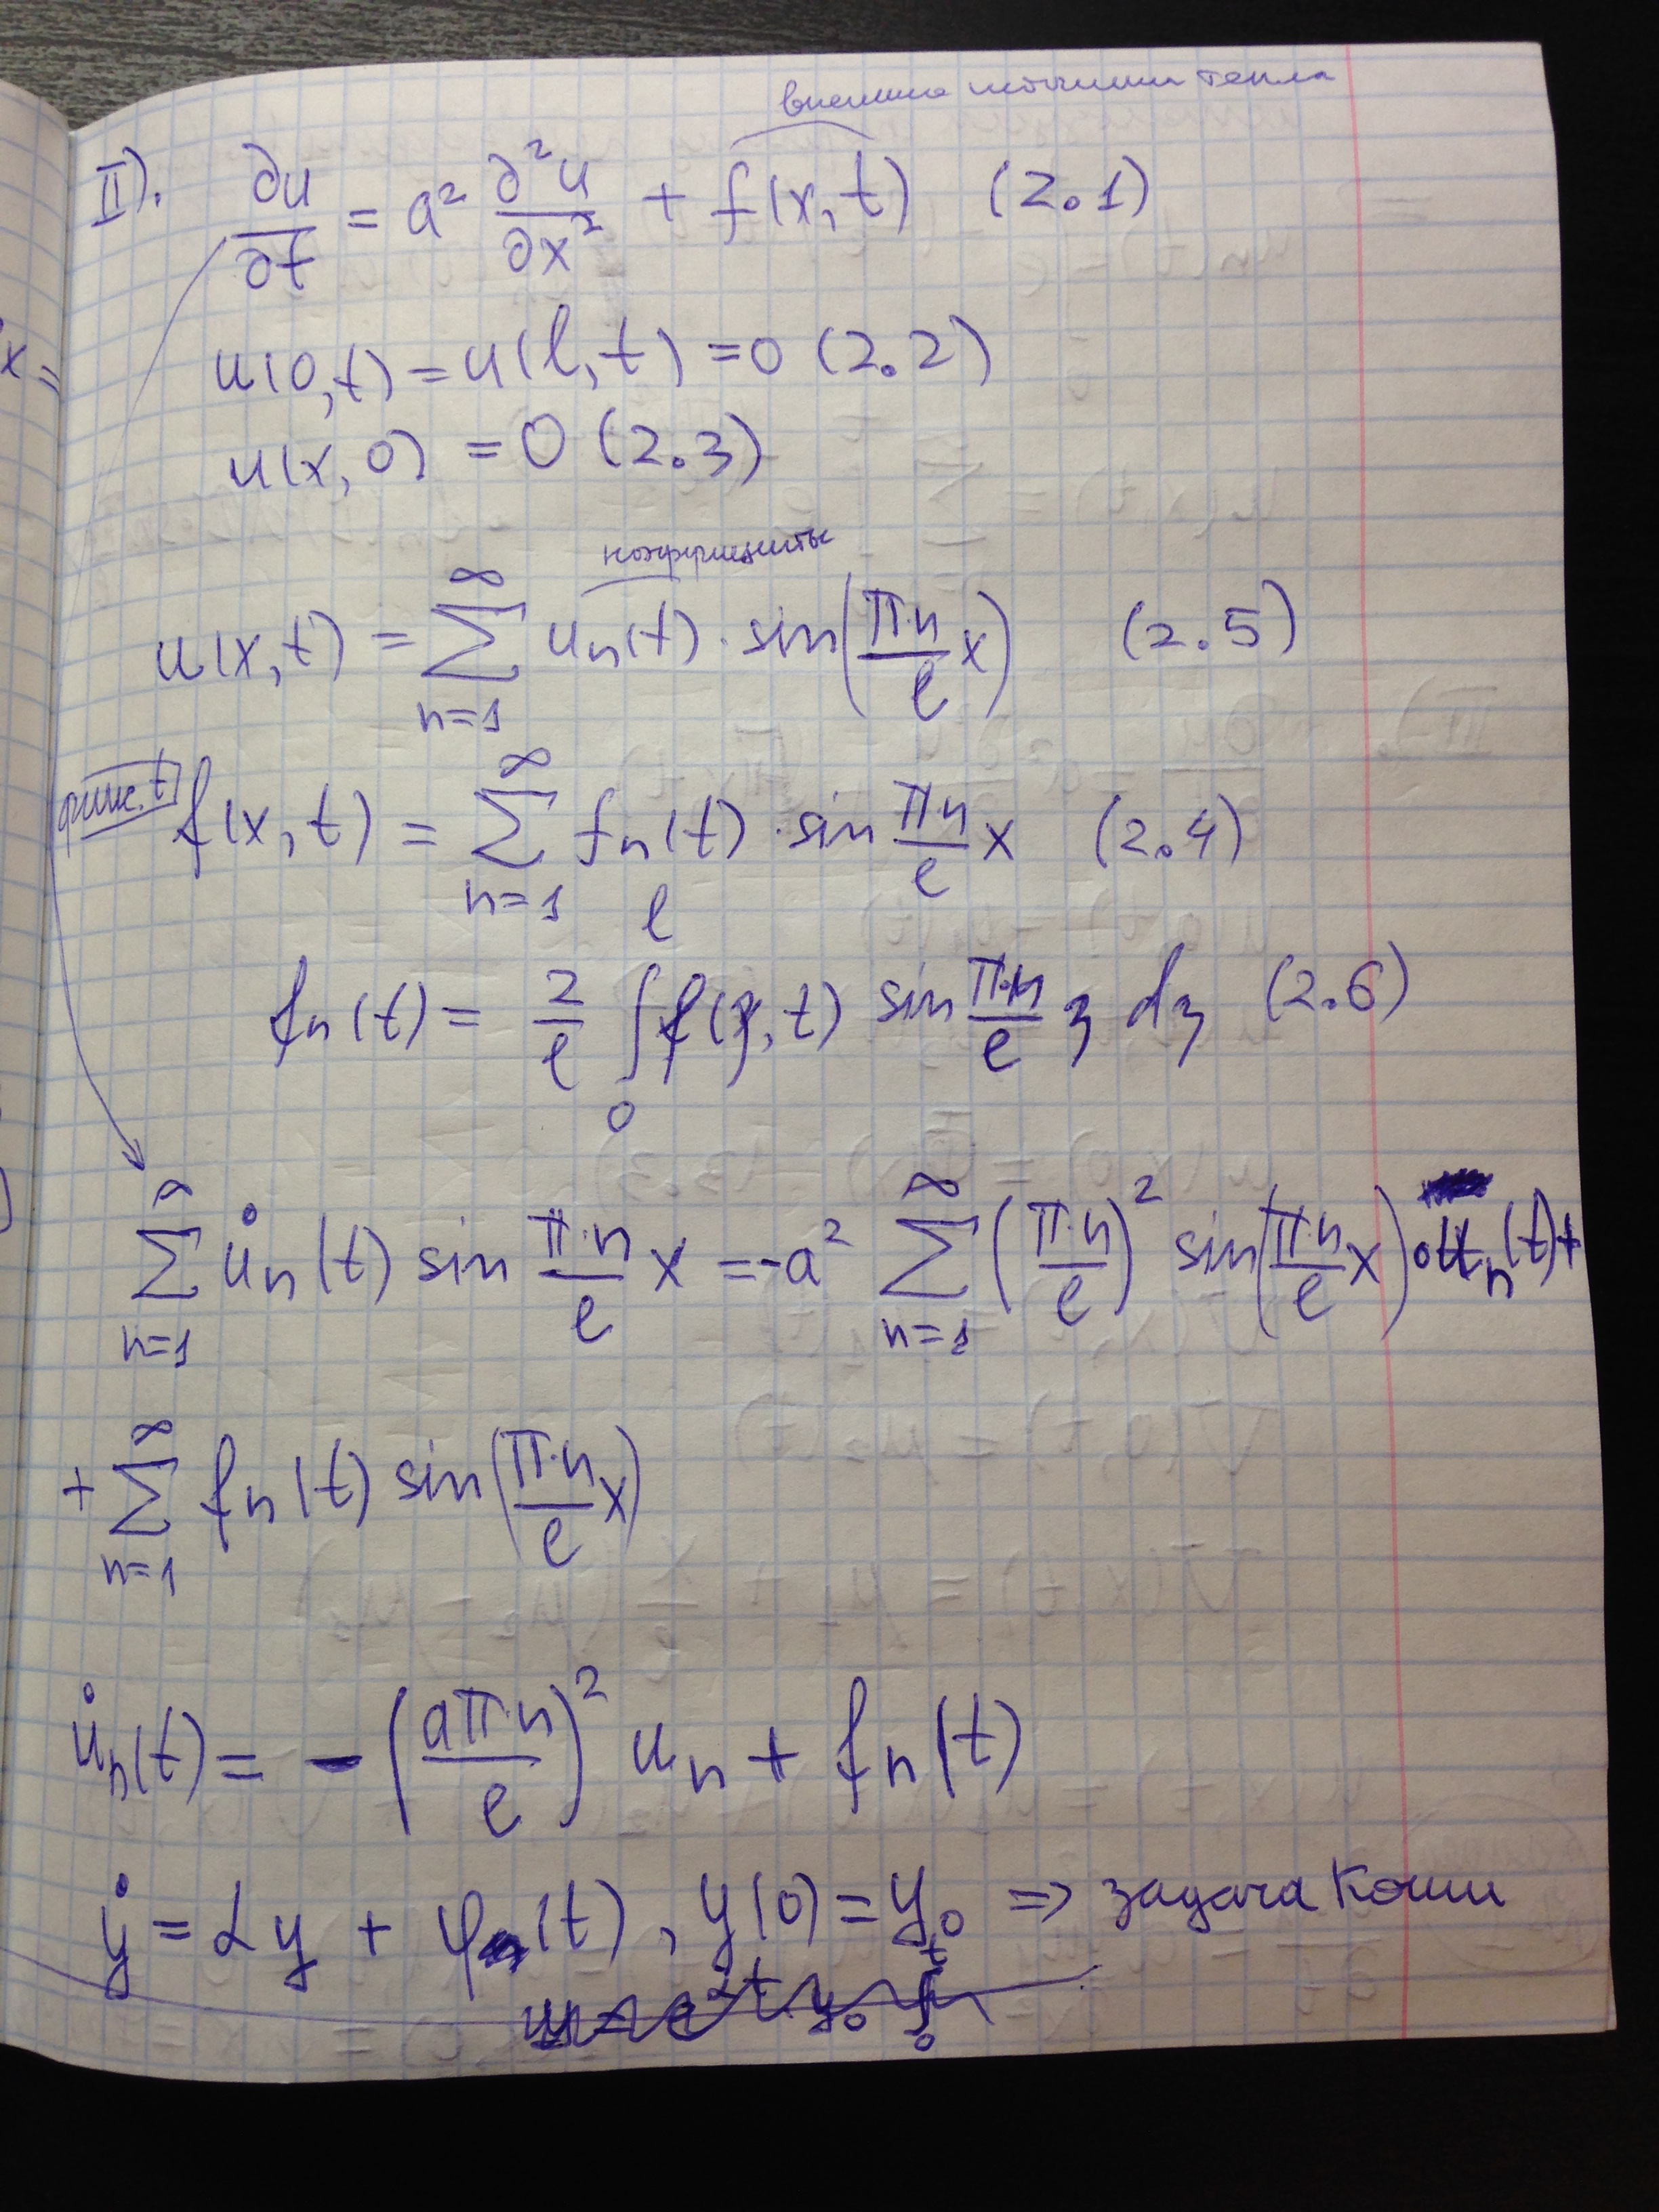 внешние источники тепла
II). ∂u/∂t = a² ∂²u/∂x² + f(x,t) (2.1)
u(0,t) = u(l,t) = 0 (2.2)
u(x,0) = 0 (2.3)
коэффициенты
u(x,t) = ∑_{n=1}^{∞} u_n(t) · sin(π·n/l x) (2.5)
фикс. t f(x,t) = ∑_{n=1}^{∞} f_n(t) · sin πn/l x (2.4)
f_n(t) = 2/l ∫_0^l f(ξ,t) sin π·n/l ξ dξ (2.6)
∑_{n=1}^{∞} u̇_n(t) sin π·n/l x = -a² ∑_{n=1}^{∞} (π·n/l)² sin(π·n/l x) · u_n(t) +
+ ∑_{n=1}^{∞} f_n(t) sin(π·n/l x)
u̇_n(t) = - (aπ·n/l)² u_n + f_n(t)
ẏ = αy + φ(t), y(0) = y_0 => задача Коши